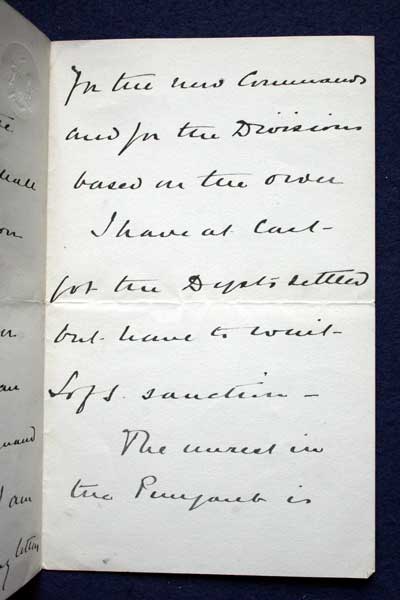 for the new Commands
and for the Divisions
based on the over
I have at last
got the Depts settled
but have to wait
S of S. sanction -
The unrest in
the Punjaub is
am
letter